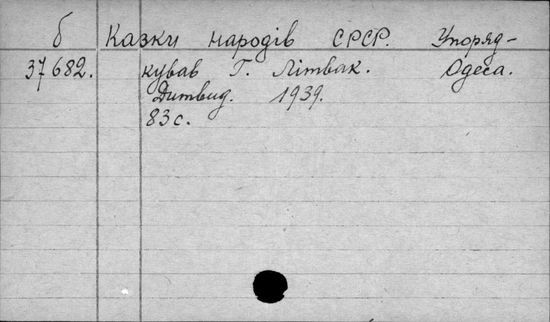 б Казки народів СРСР. Упоряд-
37682. кував Г. Літвак. Одеса.
Дитвид. 1939.
83 с.